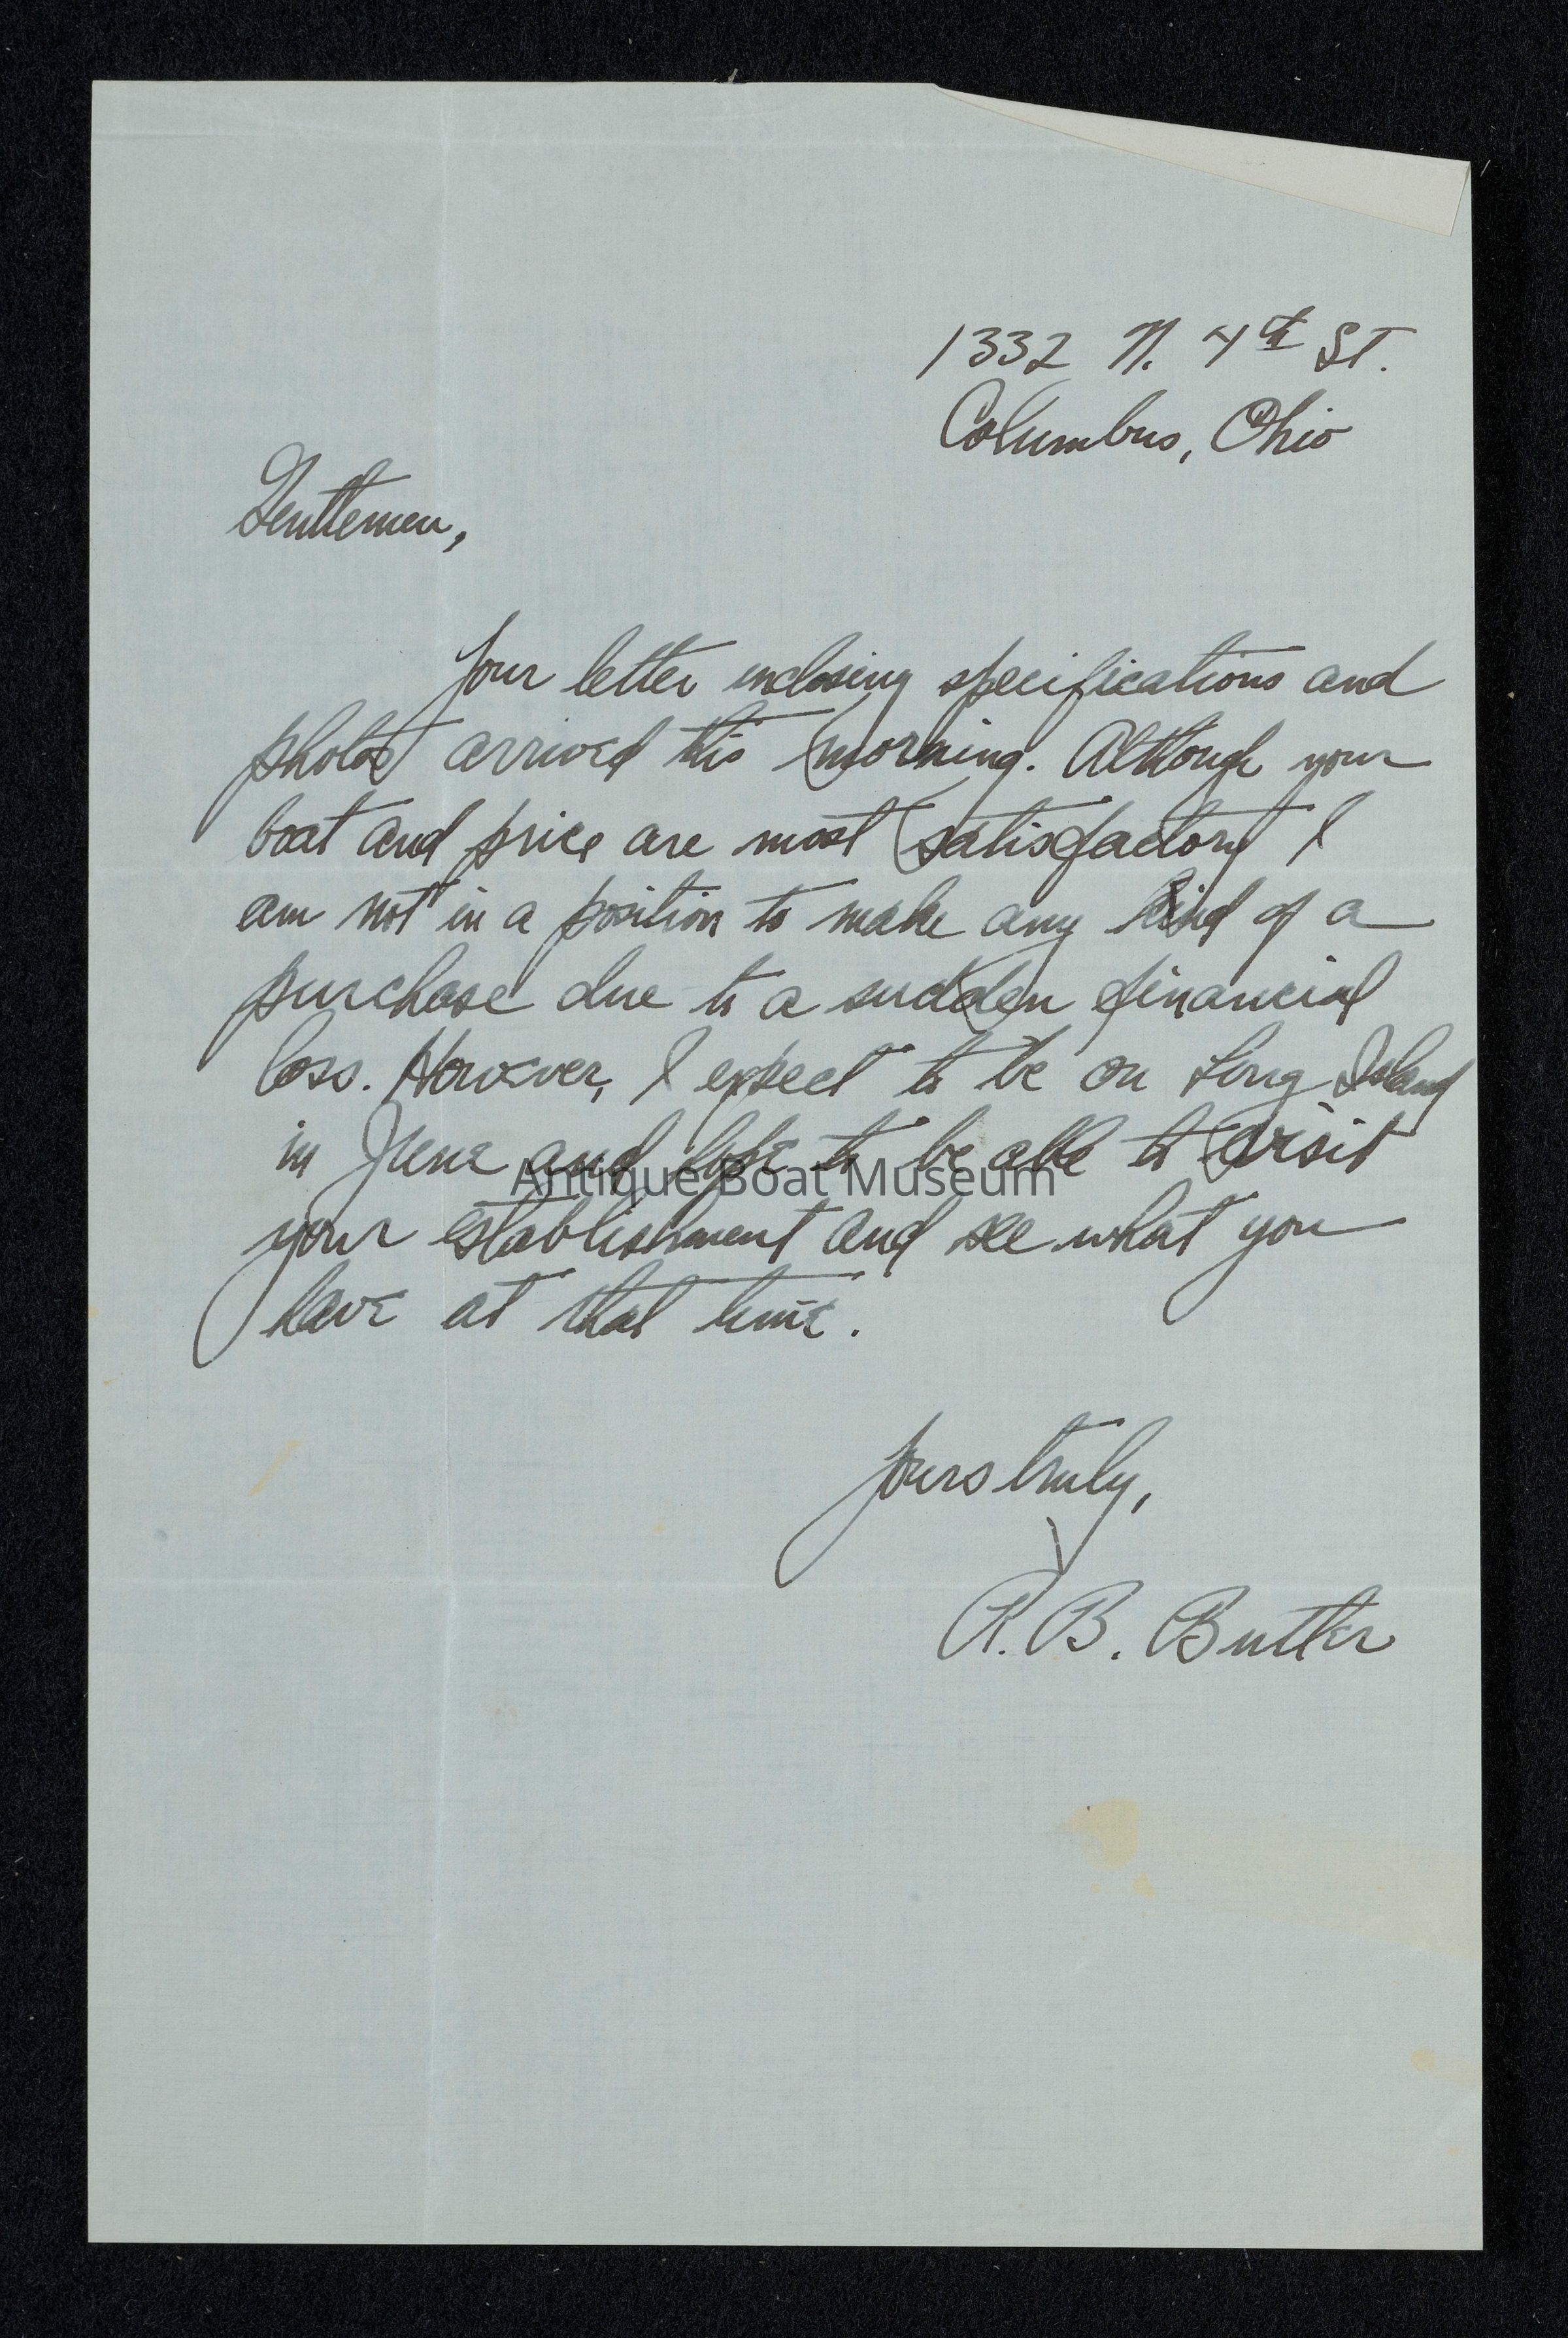 1332 N. 4th St.
Columbus, Ohio
Gentlemen,
Your letter inclosing specifications and
photos arrived this morning. Although your
boat and price are most satisfactory I
am not in a position to make any kind of a
purchase due to a sudden financial
loss. However, I expect to be on Long Island
in June and hope to be able to visit
Antique Boat Museum
your establishment and see what you
have at that time.
Yours truly,
R. B. Butler